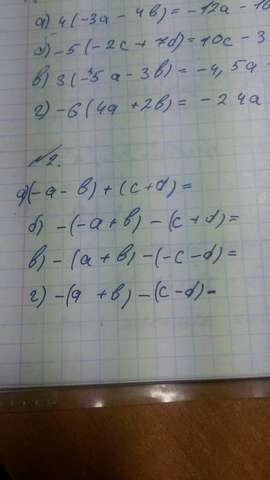 а) 4(-3a - 4b) = -12a - 16
б) -5(-2c + 7d) = 10c - 3
в) 3(-5a - 3b) = -4,5a -
г) -6(4a + 2b) = -24a
№2.
а) (-a - b) + (c + d) =
б) -(-a + b) - (c + d) =
в) -(a + b) - (-c - d) =
г) -(a + b) - (c - d) =